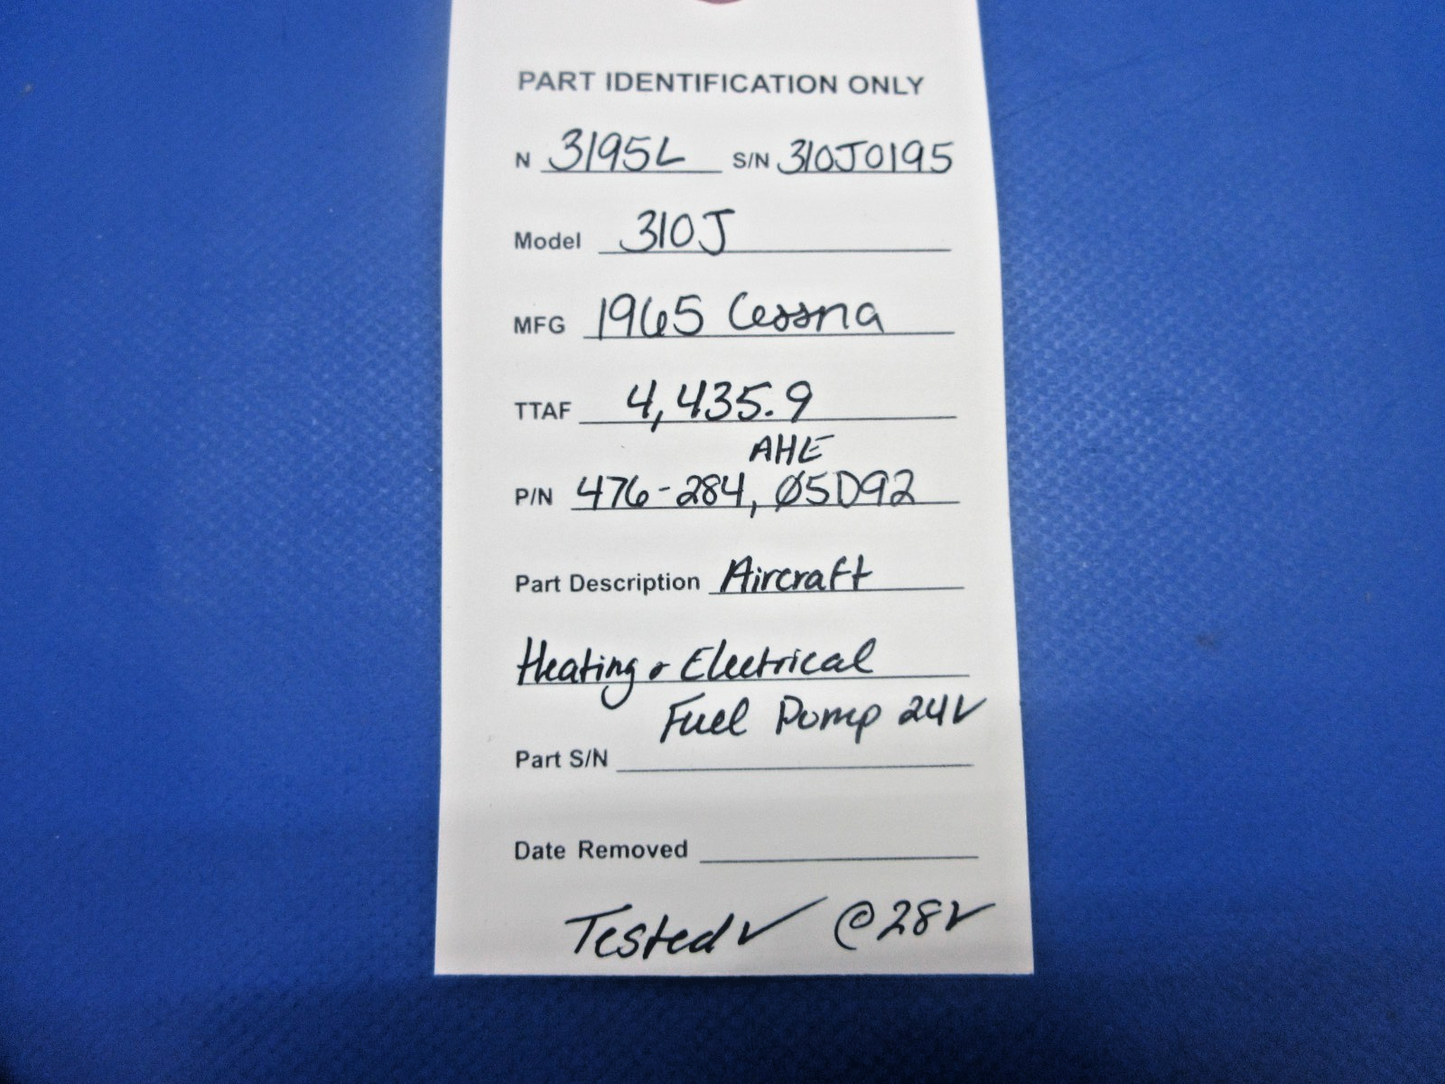 PART IDENTIFICATION ONLY
N 3195L S/N 310J0195
Model 310J
MFG 1965 Cessna
TTAF 4,435.9
AHE
P/N 476-284, Ø5D92
Part Description Aircraft
Heating & Electrical
Fuel Pump 24V
Part S/N
Date Removed
Tested ✓ @28V